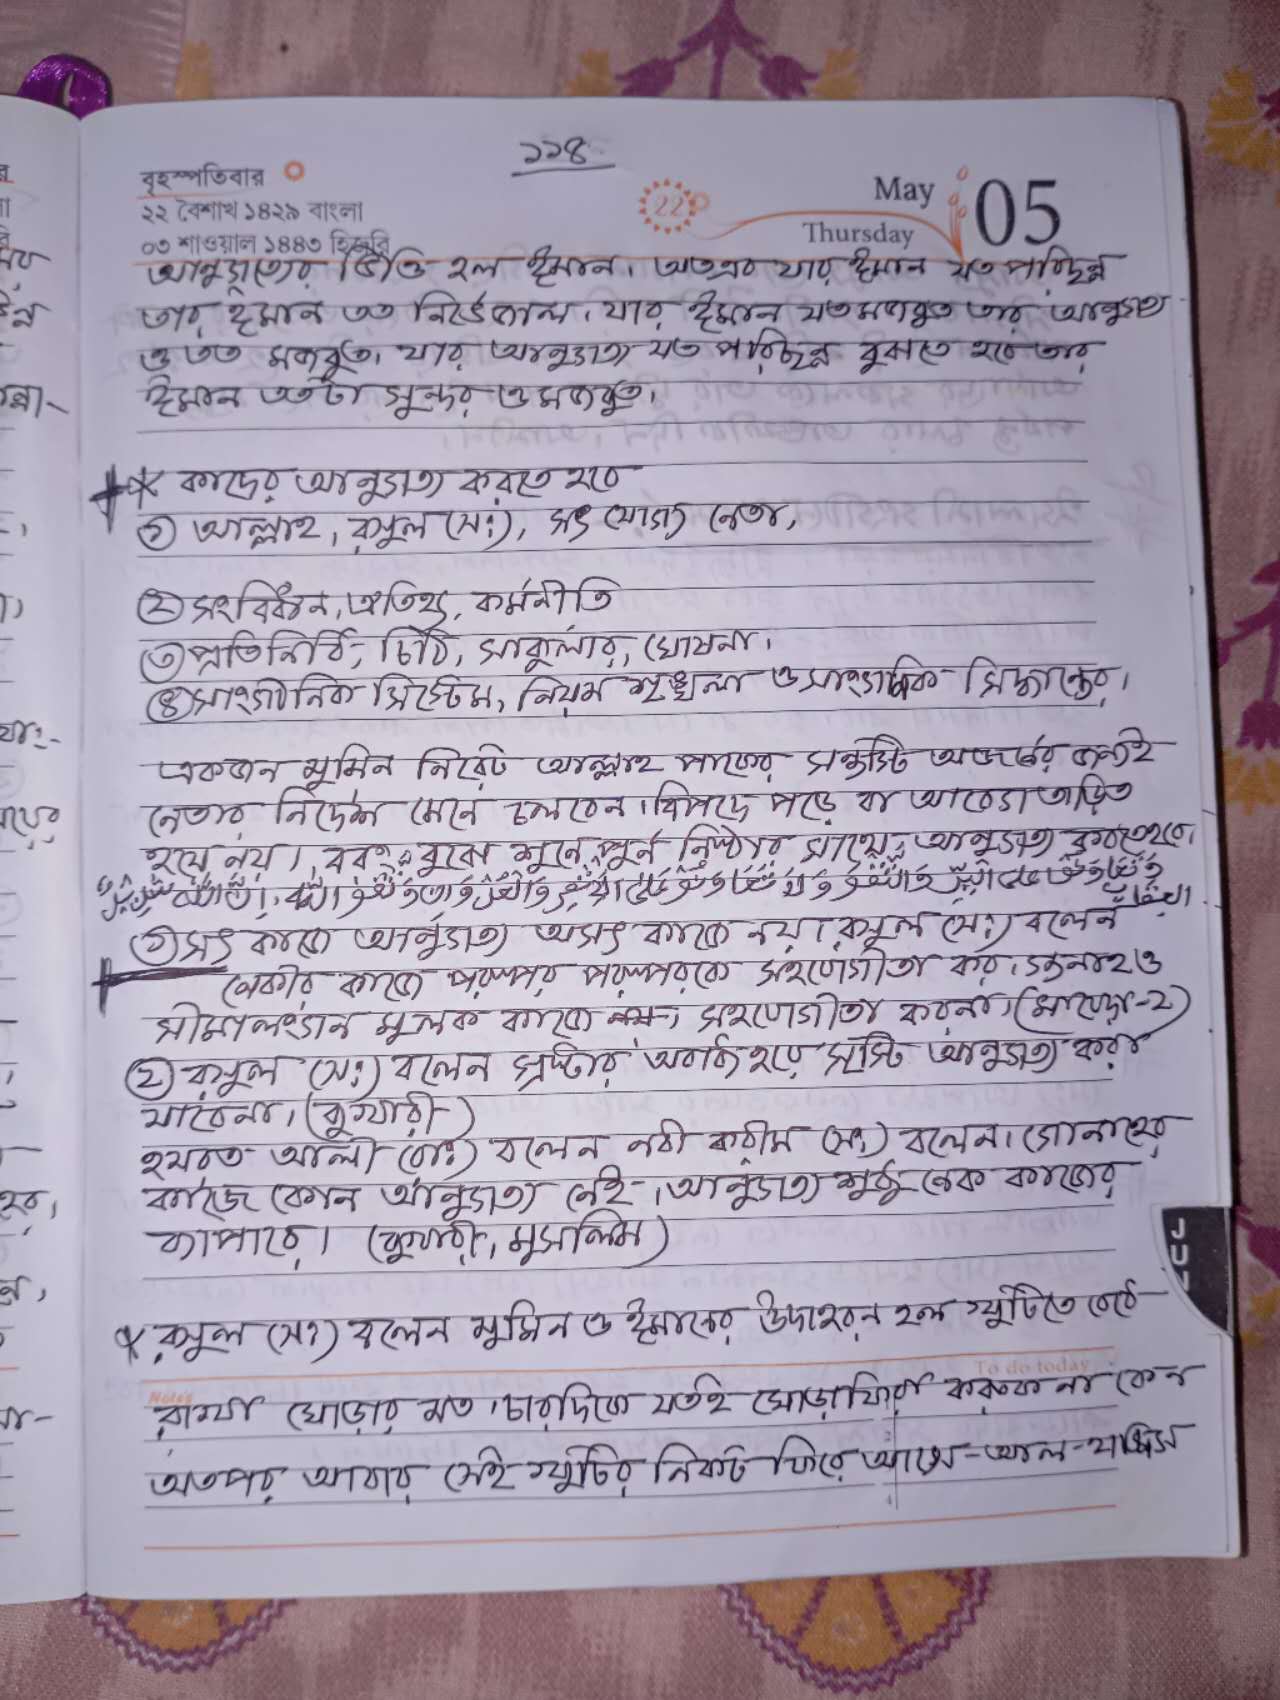 ১১৪
বৃহস্পতিবার
২২ বৈশাখ ১৪২৯ বাংলা
০৩ শাওয়াল ১৪৪৩ হিজরি
22
May 05
Thursday
আনুগত্যের ভিত্তি হল ঈমান। অতএব যার ঈমান যত পরিছন্ন
তার ঈমান তত নির্ভেজাল। যার ঈমান যত মজবুত তার আনুগত্য
ও তত মজবুত। যার আনুগত্য যত পরিছন্ন বুঝতে হবে তার
ঈমান ততটা সুন্দর ও মজবুত।
* কাদের আনুগত্য করতে হবে
১ আল্লাহ, রসুল (স:), সৎ যোগ্য নেতা,
২ সংবিধান, ঐতিহ্য, কর্মনীতি
৩ প্রতিনিধি, চিঠি, সার্কুলার, ঘোষনা।
৪ সাংগঠনিক সিস্টেম, নিয়ম শৃঙ্খলা ও সাংগঠনিক সিদ্ধান্তের।
একজন মুমিন নিরেট আল্লাহ পাকের সন্তুষ্টি অর্জনের জন্যই
নেতার নির্দেশ মেনে চলবেন। বিপদে পড়ে বা আবেগ তাড়িত
হয়ে নয়। বরং বুঝে শুনে পূর্ন নিষ্ঠার সাথে আনুগত্য করতে হবে।
১ সৎ কাজে আনুগত্য অসৎ কাজে নয়। রসুল (স:) বলেন
নেকীর কাজে পরস্পর পরস্পরকে সহযোগীতা কর। গুনাহ ও
সীমালংঘন মূলক কাজে সহযোগীতা করনা। (মায়েদা-২)
২ রসুল (স:) বলেন স্রষ্টার অবাধ্য হয়ে সৃষ্টি আনুগত্য করা
যাবেনা। (বুখারী)
হযরত আলী (রা:) বলেন নবী করীম (স:) বলেন। গোনাহের
কাজে কোন আনুগত্য নেই। আনুগত্য শুধু নেক কাজের
ব্যাপারে। (বুখারী, মুসলিম)
* রসুল (স:) বলেন মুমিন ও ঈমানের উদাহরন হল খুটিতে বেধে
Notes
To do today
রাখা ঘোড়ার মত। চারদিকে যতই ঘোড়াফিরা করুক না কেন
অতপর আবার সেই খুটির নিকট ফিরে আসে-আল-হাদিস
JUN